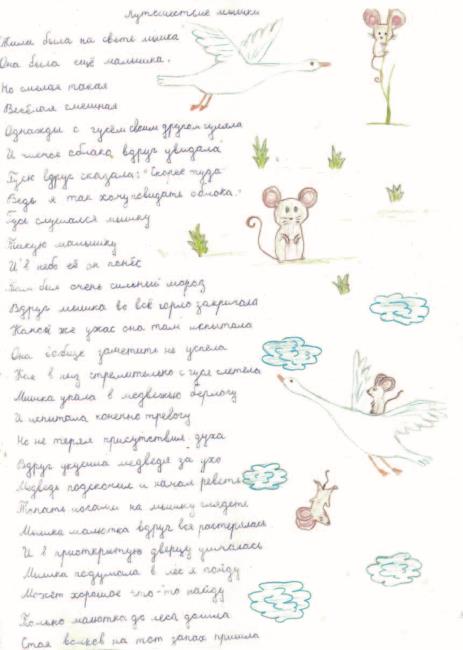 Путешествие мышки
Жила была на свете мышка
Она была ещё малышка.
Но смелая такая
Весёлая смешная
Однажды с гусём своим другом гуляла
И облака вдруг увидала
Гусю вдруг сказала: "Скорее туда
Ведь я так хочу повидать облока."
Гусь слушался мышку
Такую малышку
И в небо её он понёс
Там был очень сильный мороз
Вдруг мышка во всё горло закричала
Какой же ужас она там испытала
Она вобще заметить не успела
Как в низ стремительно с гуся слетела
Мышка упала в медвежью берлогу
И испытала конечно тревогу
Но не теряя присутствия духа
Вдруг укусила медведя за ухо
Медведь подскочил и начал реветь
Топать ногами на мышку глядеть
Мышка малютка вдруг вся растерялась
И в приоткрытую дверцу умчалась
Мышка подумала в лес я пойду
Может хорошое что-то найду
Только малютка до леса дошла
Стая волков на тот запах пришла